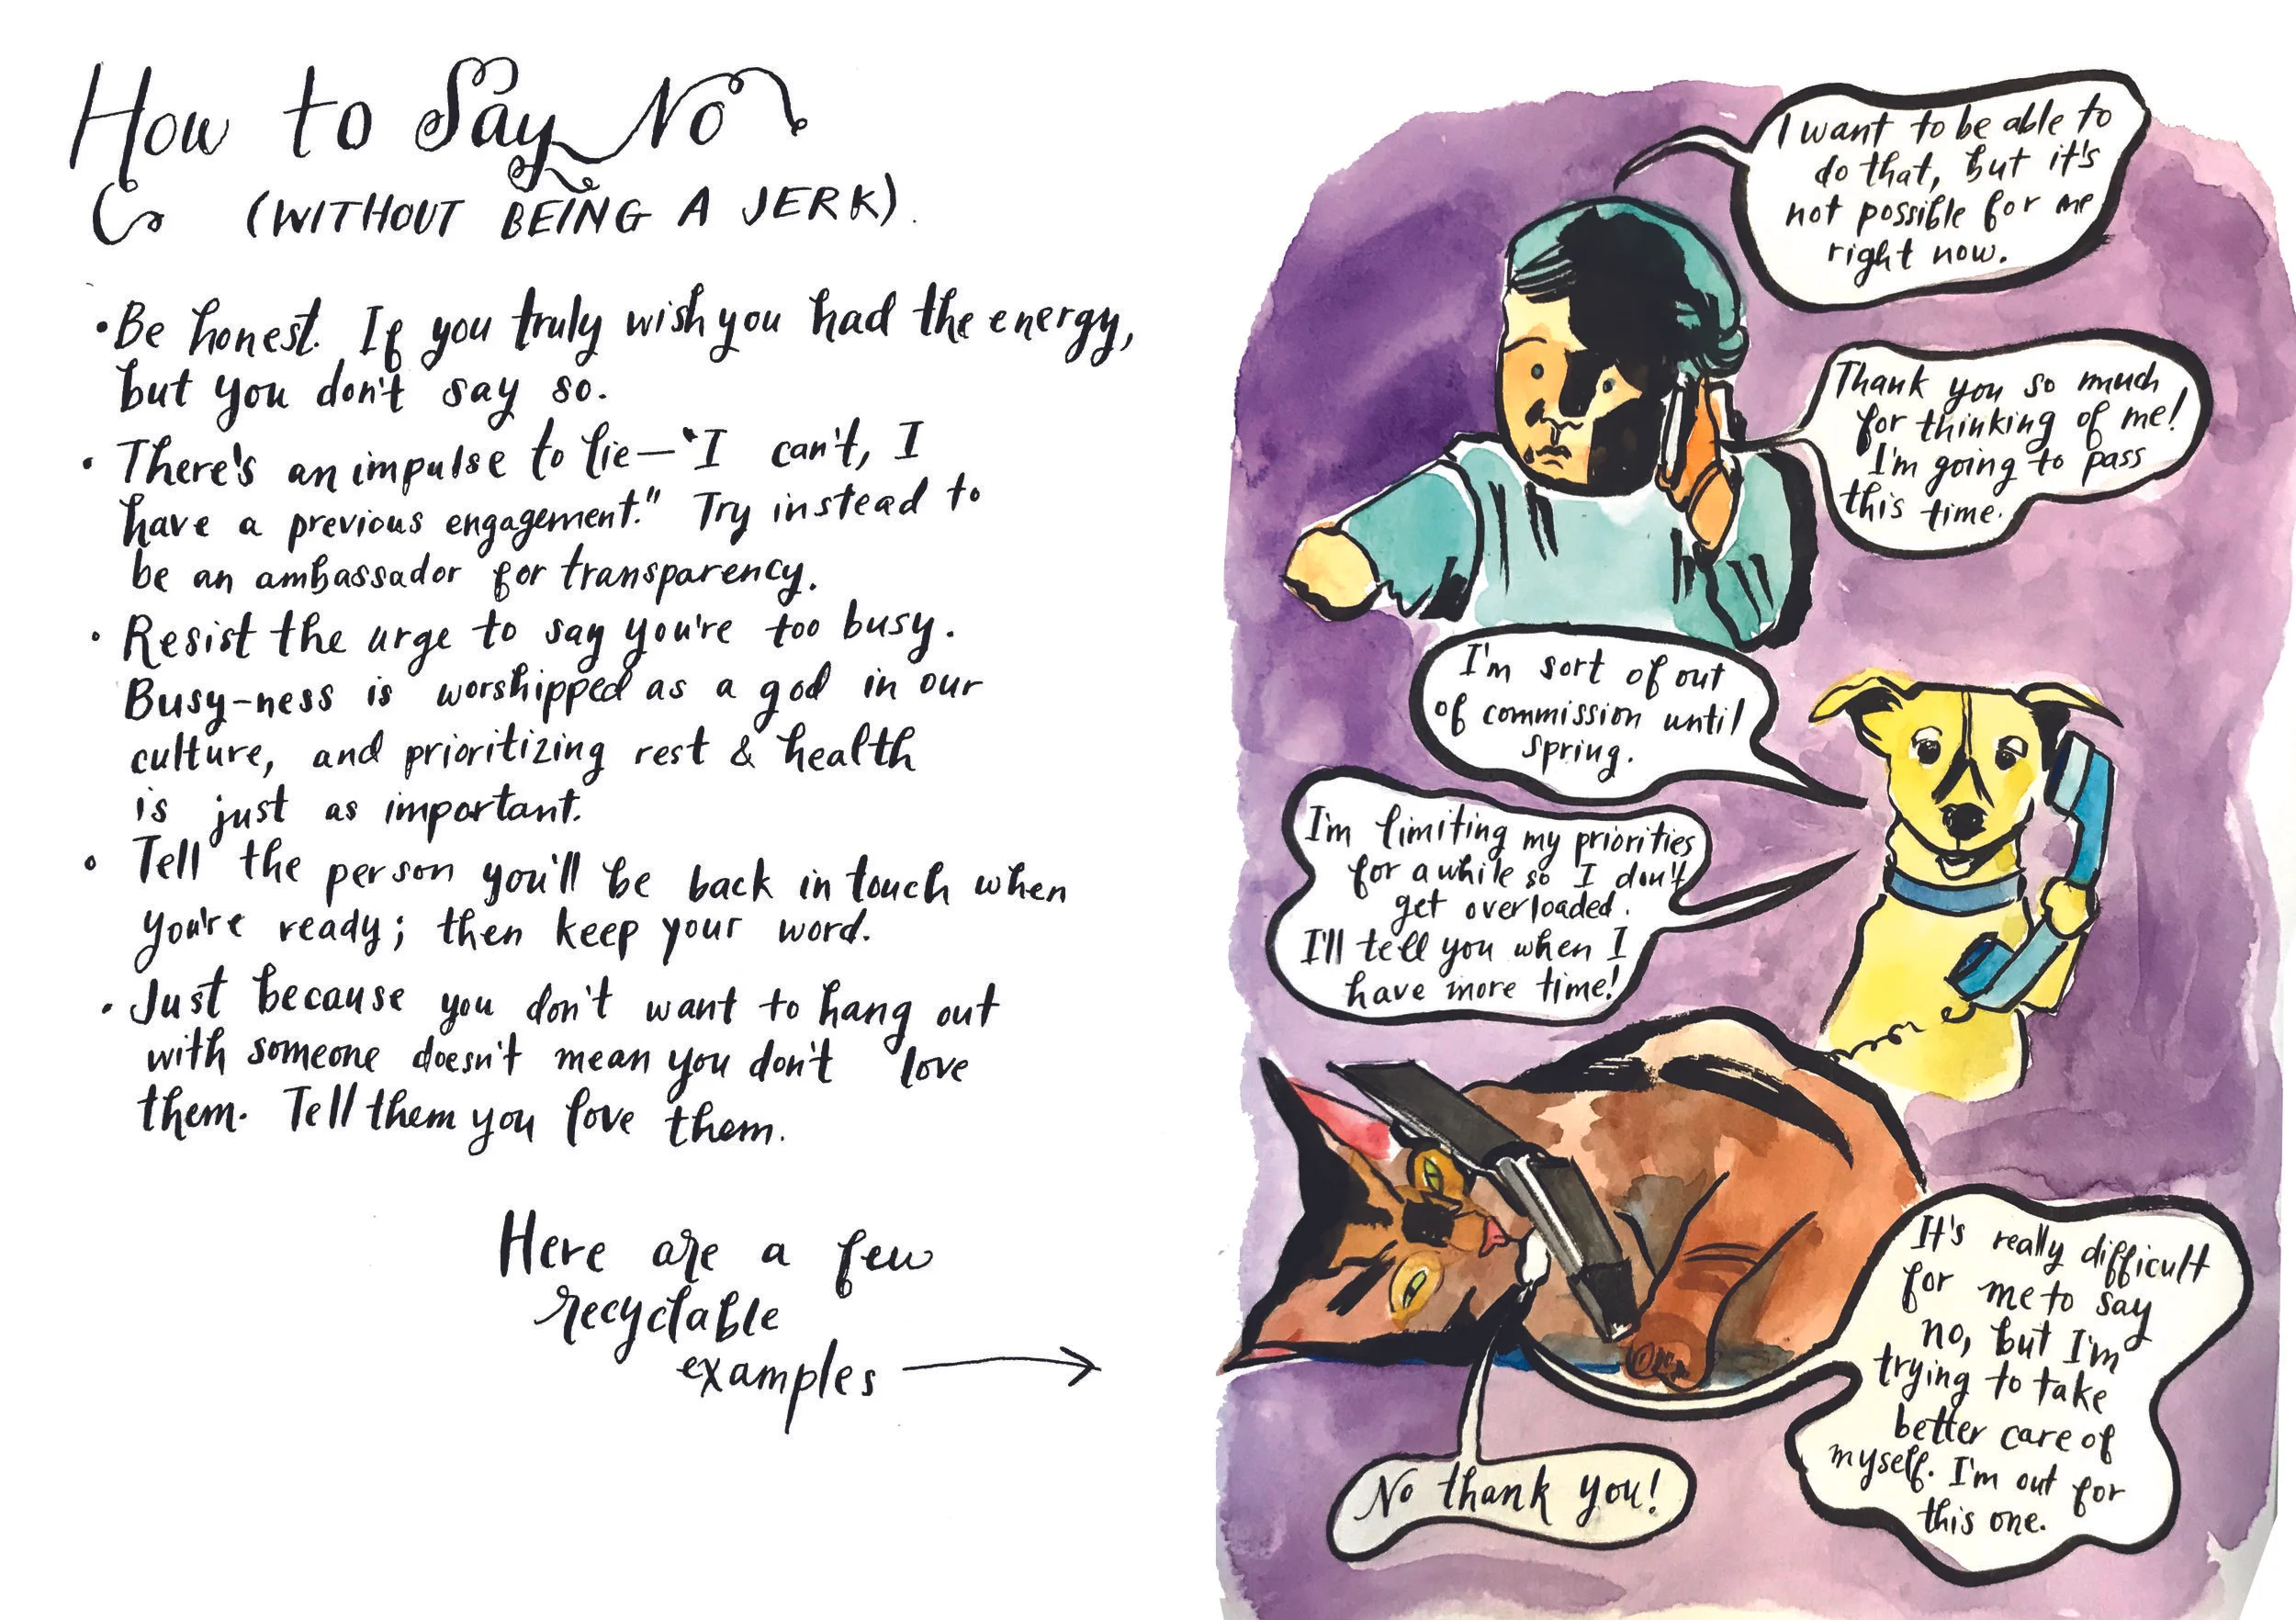 How to Say No
(WITHOUT BEING A JERK).
• Be honest. If you truly wish you had the energy,
but you don't say so.
• There's an impulse to lie—"I can't, I
have a previous engagement." Try instead to
be an ambassador for transparency.
• Resist the urge to say you're too busy.
Busy-ness is worshipped as a god in our
culture, and prioritizing rest & health
is just as important.
• Tell the person you'll be back in touch when
you're ready; then keep your word.
• Just because you don't want to hang out
with someone doesn't mean you don't love
them. Tell them you love them.
Here are a few
recyclable
examples
I want to be able to
do that, but it's
not possible for me
right now.
Thank you so much
for thinking of me!
I'm going to pass
this time.
I'm sort of out
of commission until
spring.
I'm limiting my priorities
for a while so I don't
get overloaded.
I'll tell you when I
have more time!
It's really difficult
for me to say
no, but I'm
trying to take
better care of
myself. I'm out for
this one.
No thank you!